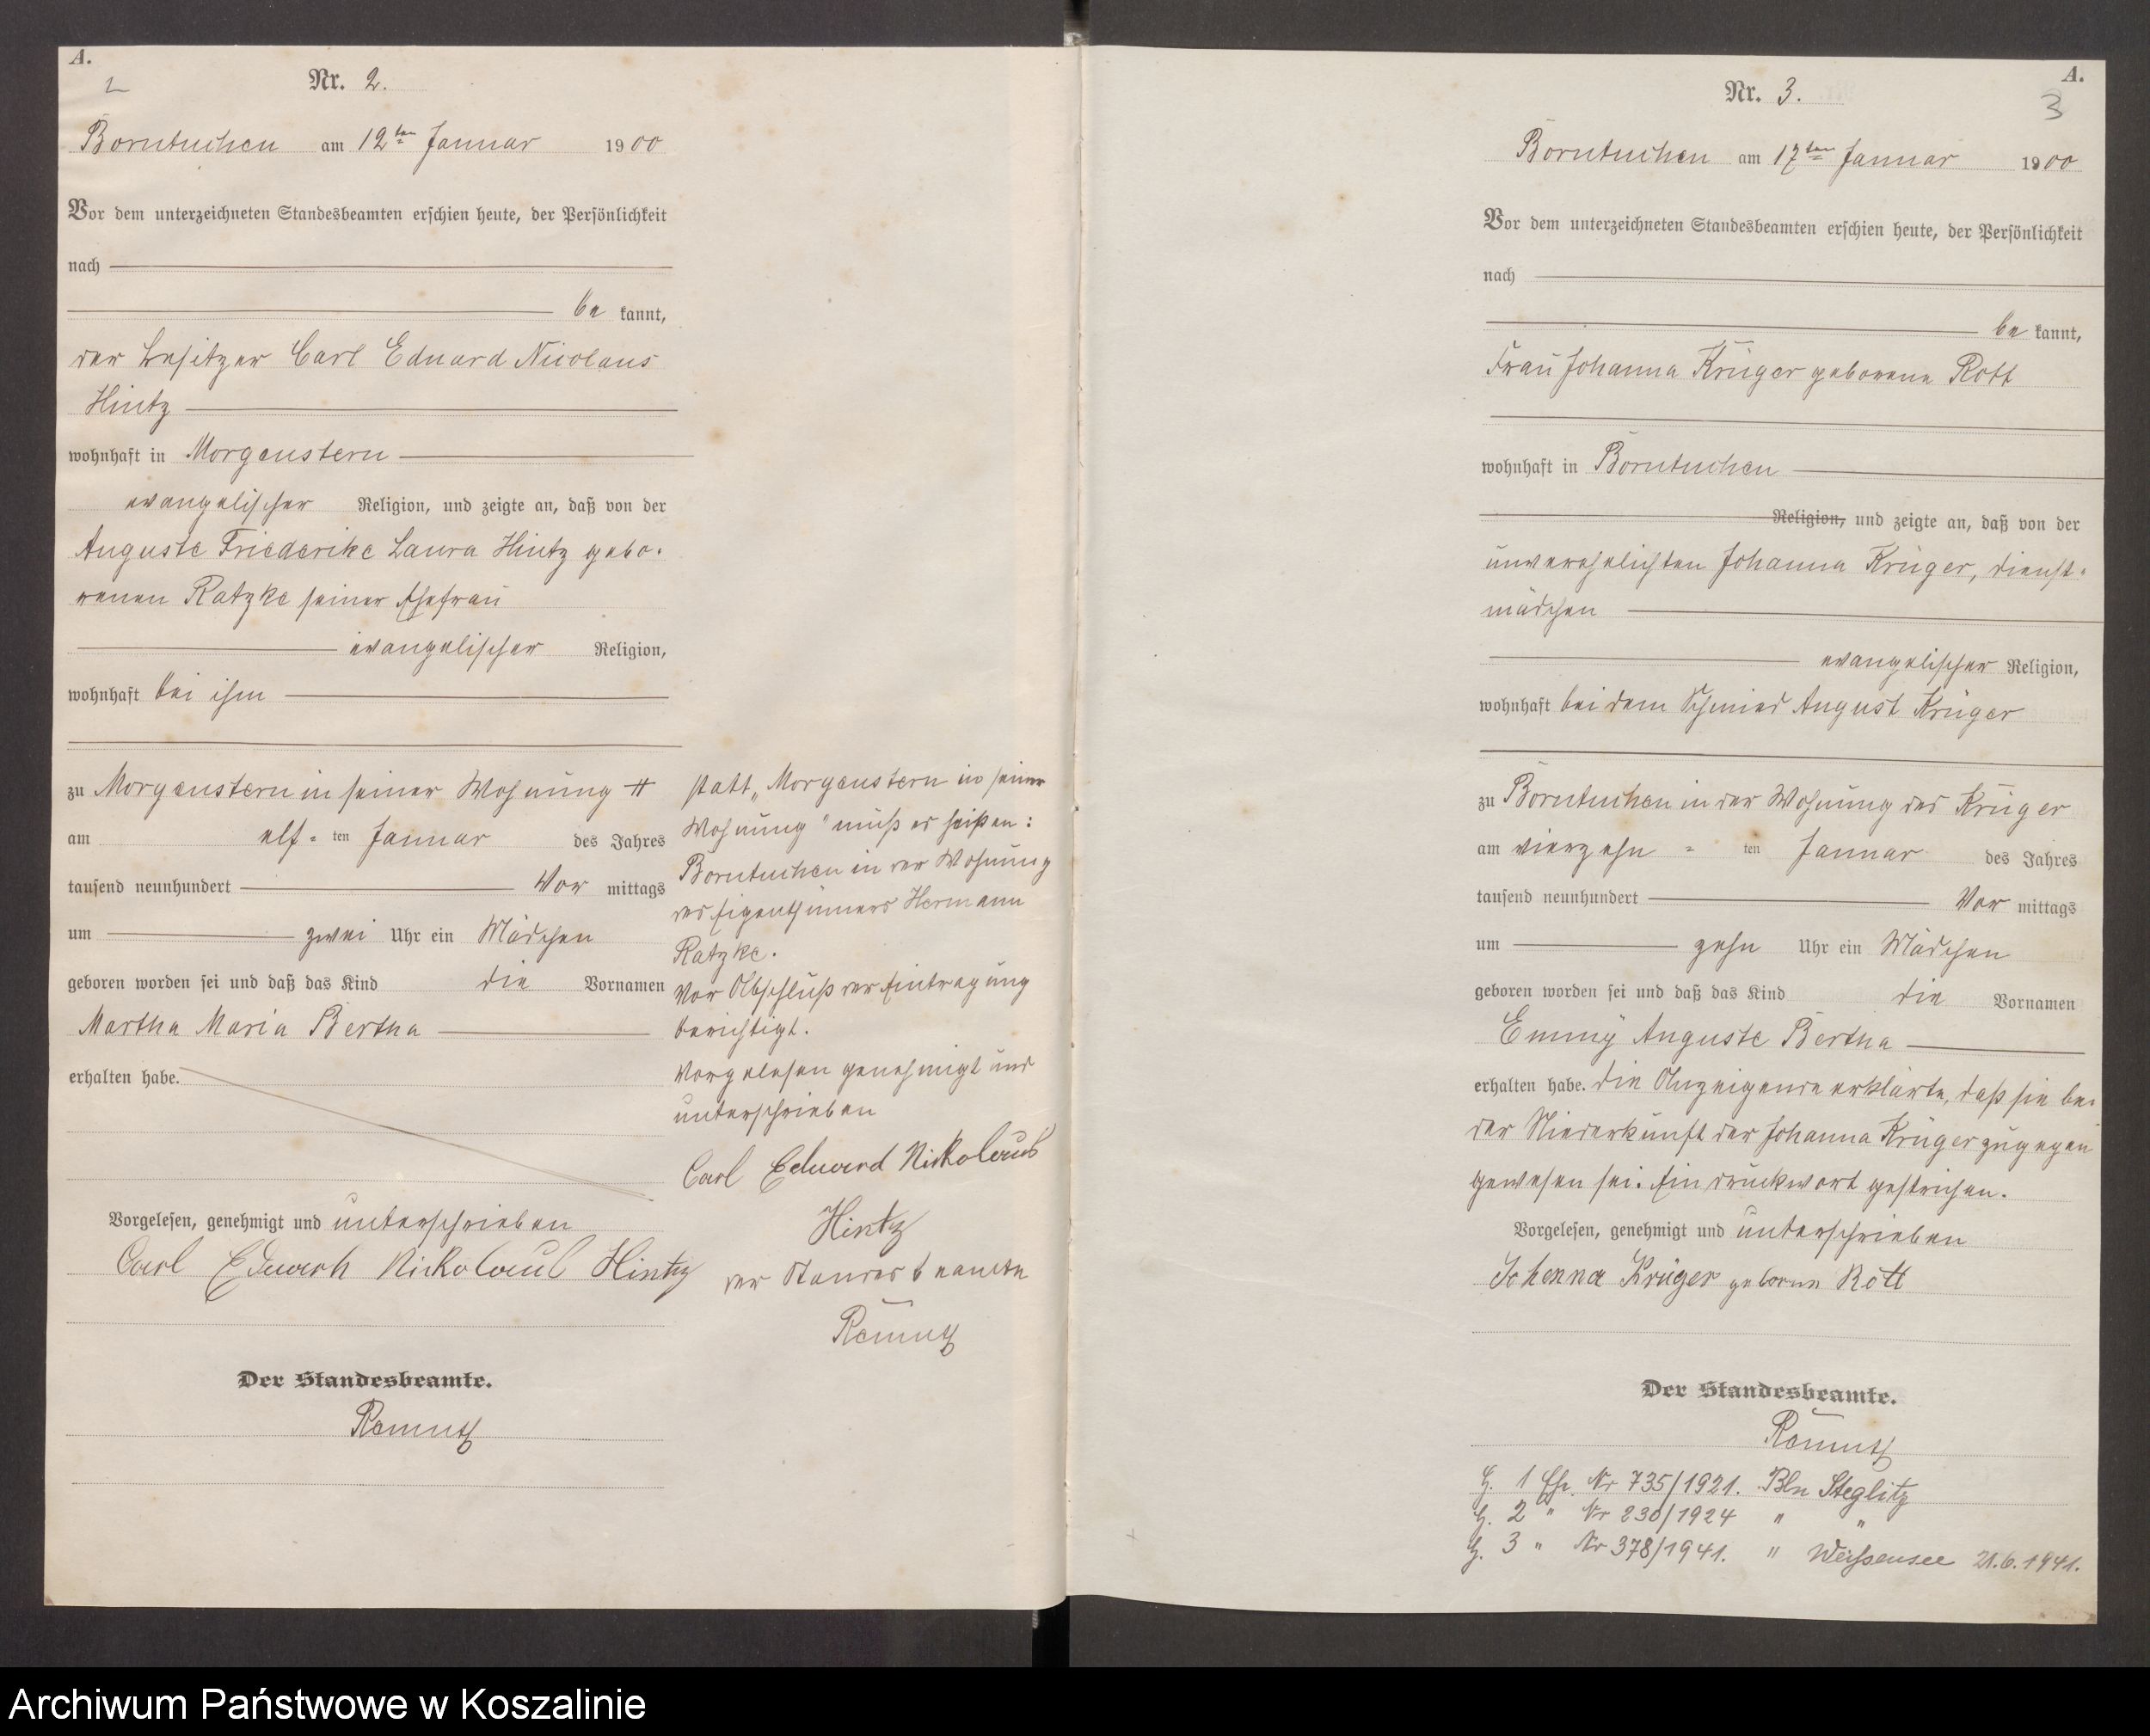 A.
2
Nr. 2.
Borntuchen am 12ten Januar 1900
Vor dem unterzeichneten Standesbeamten erschien heute, der Persönlichkeit
nach
be kannt,
der Besitzer Carl Eduard Nicolaus
Hintz
wohnhaft in Morgenstern
evangelischer Religion, und zeigte an, daß von der
Auguste Friederike Laura Hintz gebo-
renen Ratzke seiner Ehefrau
evangelischer Religion,
wohnhaft bei ihm
zu Morgenstern in seiner Wohnung #
am elf-ten Januar des Jahres
tausend neunhundert Vor mittags
um zwei Uhr ein Mädchen
geboren worden sei und daß das Kind die Vornamen
Martha Maria Bertha
erhalten habe.
Vorgelesen, genehmigt und unterschrieben
Carl Eduard Nickolaus Hintz
Der Standesbeamte.
statt „Morgenstern in seiner
Wohnung" muß es heißen:
Borntuchen in der Wohnung
des Eigenthümers Hermann
Ratzke.
Vor Abschluß der Eintragung
berichtigt.
Vorgelesen genehmigt und
unterschrieben
Carl Eduard Nickolaus
Hintz
der Standesbeamte
A.
Nr. 3.
3
Borntuchen am 17ten Januar 1900
Vor dem unterzeichneten Standesbeamten erschien heute, der Persönlichkeit
nach
be kannt,
Frau Johanna Krüger geborene Rott
wohnhaft in Borntuchen
Religion, und zeigte an, daß von der
unverehelichten Johanna Krüger, Dienst-
mädchen
evangelischer Religion,
wohnhaft bei dem Schmied August Krüger
zu Borntuchen in der Wohnung des Krüger
am vierzehn-ten Januar des Jahres
tausend neunhundert Vor mittags
um zehn Uhr ein Mädchen
geboren worden sei und daß das Kind die Vornamen
Emmy Auguste Bertha
erhalten habe. Die Anzeigende erklärte, daß sie bei
der Niederkunft der Johanna Krüger zugegen
gewesen sei. Ein Druckwort gestrichen.
Vorgelesen, genehmigt und unterschrieben
Johanna Krüger geborne Rott
Der Standesbeamte.
G. 1 Ehe Nr 735/1921. Bln Steglitz
G. 2 " Nr 230/1924 " "
G. 3 " Nr 378/1941. " Weißensee 21.6.1941.
Archiwum Państwowe w Koszalinie